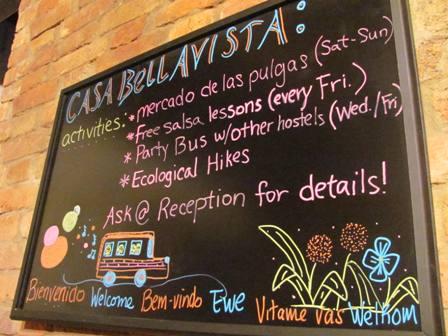 CASA BELLAVISTA:
activities: *mercado de las pulgas (Sat-Sun)
*free salsa lessons (every Fri.)
*Party Bus w/other hostels (Wed./Fri)
*Ecological Hikes
Ask @ Reception for details!
Bienvenido Welcome Bem-vindo Ewe Vitame vas Welkom